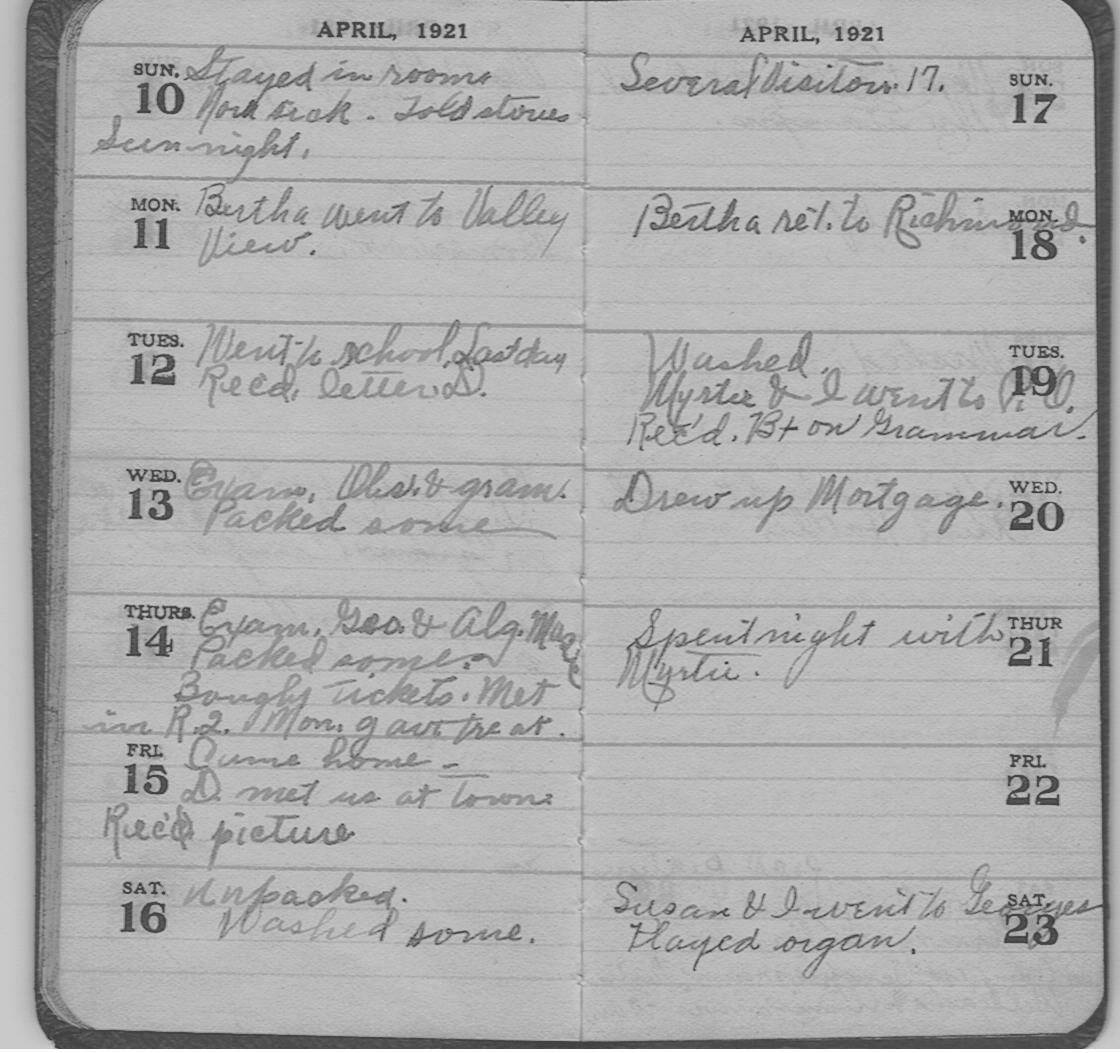 APRIL, 1921
SUN. Stayed in rooms
10 sick. Told stories
Sun night.
MON. Bertha went to Valley
11 View.
TUES. Went to school, Last day
12 Rec'd. letter D.
WED. Exam, Obs. & gram.
13 Packed some
THURS. Exam, Geo. & Alg.
14 Packed some.
Bought tickets. Met
in R.2. Mon. gave treat.
FRI. Came home -
15 D. met us at town.
Rec'd picture
SAT. Unpacked.
16 Washed some.
APRIL, 1921
Several Visitors. 17. SUN.
17
Bertha ret. to Richmond. MON.
18
Washed. TUES.
Myrtie & I went to P.O. 19
Rec'd. B+ on Grammar.
Drew up Mortgage. WED.
20
Spent night with THUR
Myrtie. 21
FRI.
22
Susan & I went to Georges SAT.
Played organ. 23